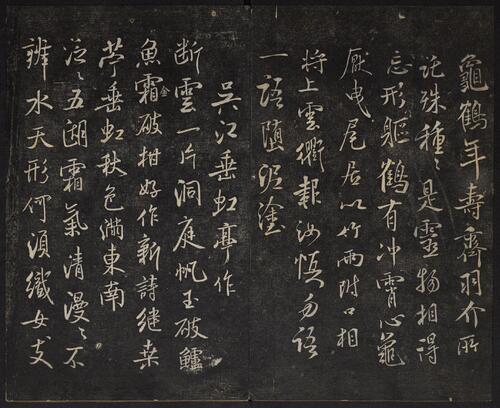 龜鶴年壽齊羽介所
託殊種〻是靈物相得
忘形軀鶴有冲霄心龜
厭曳尾居以竹兩附口相
將上雲衢報汝慎勿語
一語墮泥塗
吳江垂虹亭作
断雲一片洞庭帆玉破鱸
魚霜破柑好作新詩継桒
金
苧垂虹秋色滿東南
泛〻五湖霜氣清漫〻不
辨水天形何湏織女支